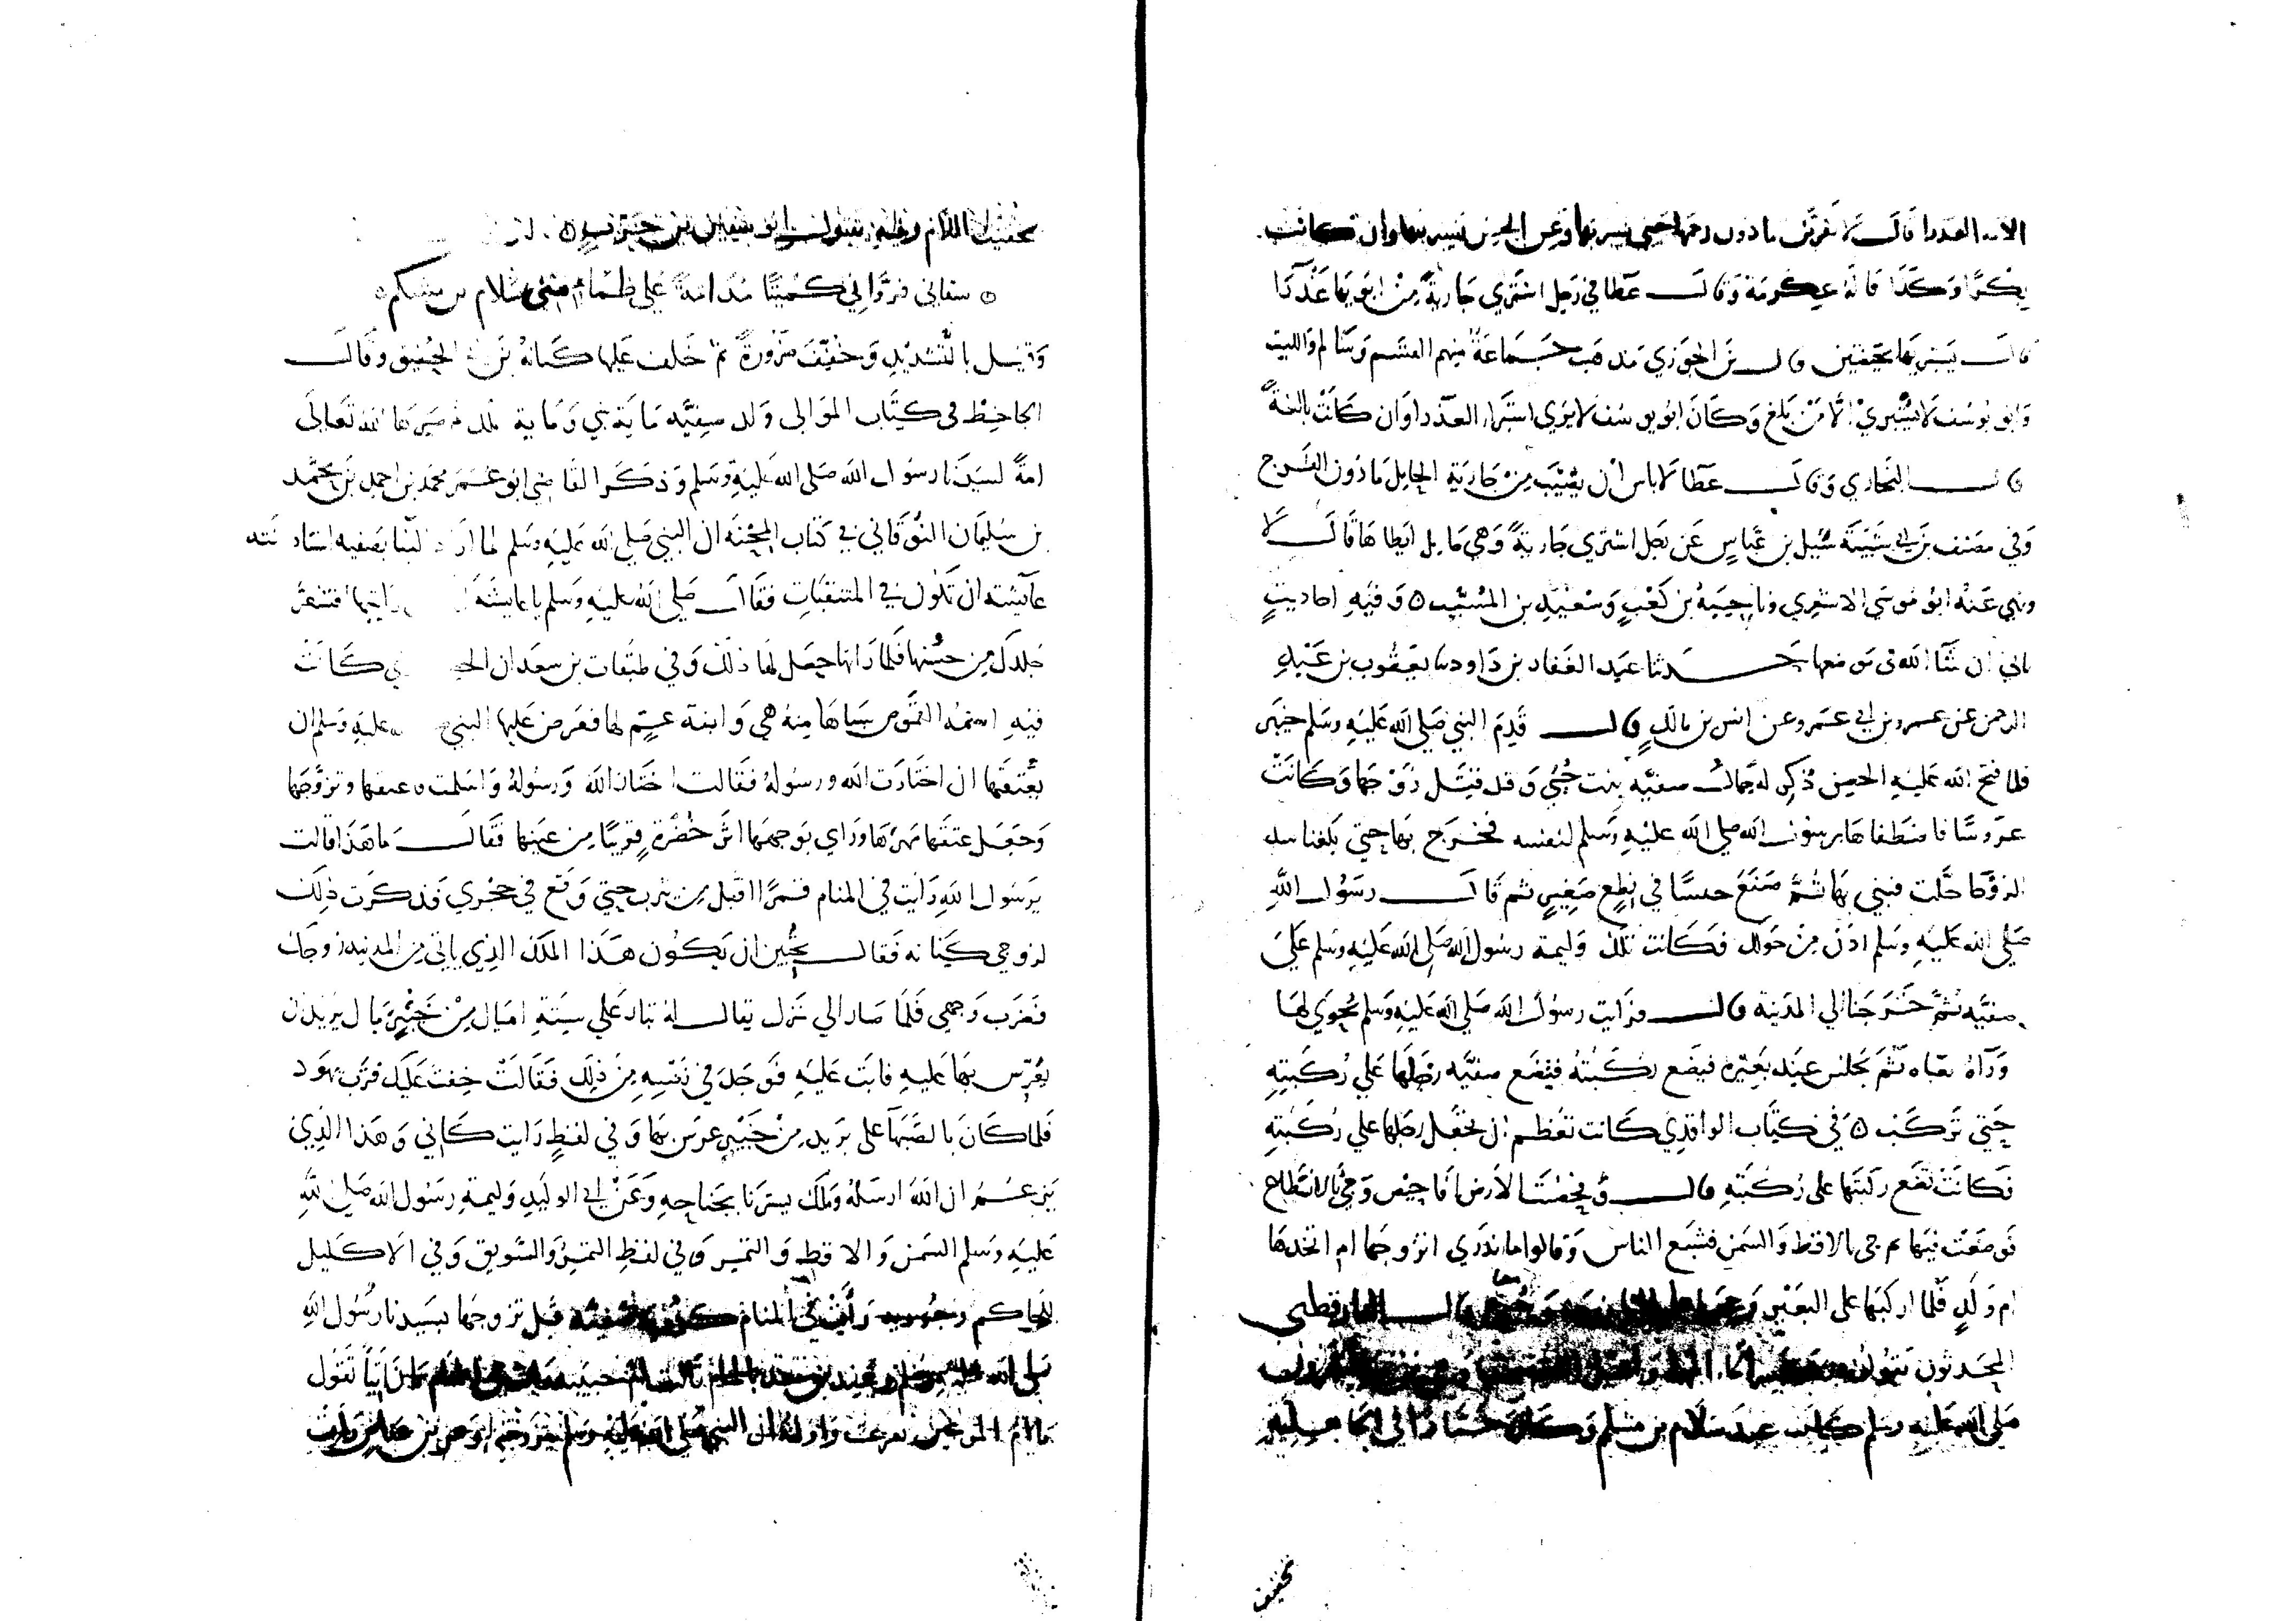 الامه العذرا قال لا يقربن ما دون رحمها حتى يستبريها وعن الحسن يستبريها وان كانت
بكرا وكذا قاله عكرمة وقال عطا في رجل اشترى جارية من ابويها عذرا
قال يستبريها بحيضتين وقال بن الجوزي مذهب جماعة منهم القسم وسالم والليث
وابو يوسف لا يستبري الا من بلغ وكان ابو يوسف لا يرى استبراء العذرا وان كانت بالغة
قال البخاري وقال عطا لا باس ان يصيب من جارية الحامل ما دون الفرج
وفي مصنف بن ابي شيبة سئل بن عباس عن رجل اشترى جارية وهي حامل ايطاها قال لا
ونهى عنه ابو موسى الاشعري وناجية بن كعب وسعيد بن المسيب ٥ وفيه احاديث
تاتي ان شا الله في موضعها حدثنا عبد الغفار بن داود سا يعقوب بن عبد
الرحمن عن عمرو بن ابي عمرو عن انس بن مالك قال قدم النبي صلى الله عليه وسلم خيبر
فلما فتح الله عليه الحصن ذكر له جمال صفيه بنت حيي وقد قتل زوجها وكانت
عروسا فاصطفاها رسول الله صلى الله عليه وسلم لنفسه فخرج بها حتى بلغنا سد
الروحا حلت فبنى بها ثم صنع حيسا في نطع صغير ثم قال رسول الله
صلى الله عليه وسلم اذن من حولك فكانت تلك وليمة رسول الله صلى الله عليه وسلم على
صفيه ثم خرجنا الى المدينة قال فرايت رسول الله صلى الله عليه وسلم يحوي لها
وراه بعباه ثم يجلس عند بعيره فيضع ركبته فتضع صفيه رجلها على ركبته
حتى تركب ٥ وفي كتاب الواقدي كانت تعظم ان تجعل رجلها على ركبته
فكانت تضع ركبتها على ركبته قال وفحصت الارض افاحيص وجي بالانطاع
فوضعت فيها ثم جي بالاقط والسمن فشبع الناس وقالوا ما ندري اتزوجها ام اتخذها
ام ولد فلما اركبها على البعير قال الدارقطني
المحدثون يقولون
صلى الله عليه وسلم كانت عند سلام بن مشكم وكان خمارا في الجاهلية
تخفيف
بتخفيف اللام وفيه يقول ابو سفيان بن حرب ٥
٥ سقاني فرواني كميتا مدامة على ظماء مني سلام بن مشكم ٥
وقيل بالتشديد وخفف ضرورة ثم خلف عليها كنانة بن ابي الحقيق وقال
الجاحظ في كتاب الموالي ولد صفيه ماية نبي وماية ملك ثم صيرها الله تعالى
امة لسيدنا رسول الله صلى الله عليه وسلم وذكر القاضي ابو عمر محمد بن احمد بن محمد
بن سليمان النوقاتي في كتاب المحنه ان النبي صلى الله عليه وسلم لما اراد البنا بصفيه استاذنته
عائشه ان تكون في المتنقبات فقال صلى الله عليه وسلم يا عايشة رايتها اقشعر
جلدك من حسنها فلما راتها حصل لها ذلك وفي طبقات بن سعد ان كانت
فيه اسمه القموص سباها منه هي وابنة عم لها فعرض عليها النبي عليه وسلم ان
يعتقها ان اختارت الله ورسوله فقالت اختار الله ورسوله واسلمت فاعتقها وتزوجها
وجعل عتقها مهرها وراى بوجهها اثر خضرة قريبا من عينها فقال ما هذا قالت
يرسول الله رايت في المنام قمرا اقبل من يثرب حتى وقع في حجري فذكرت ذلك
لزوجي كنانه فقال تحبين ان يكون هذا الملك الذي ياتي من المدينه زوجك
فضرب وجهي فلما صار الى منزل يقال له تبار على ستة اميال من خيبر مال يريد ان
يعرس بها عليه فابت عليه فوجد في نفسه من ذلك فقالت خفت عليك قرب يهود
فلما كان بالصهبا على بريد من خيبر عرس بها وفي لفظ رايت كاني وهذا الذي
يزعم ان الله ارسله وملك يسترنا بجناحه وعن ابي الوليد وليمة رسول الله صلى الله
عليه وسلم السمن والاقط والتمر وفي لفظ التمر والسويق وفي الاكليل
للحاكم وجويريه رات في المنام كرويا صفيه قبل تزوجها بسيدنا رسول الله
صلى الله عليه وسلم تقول
يا ام المومنين ففزعت واولته ان النبي صلى الله عليه وسلم